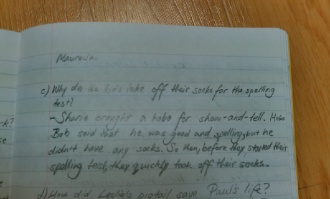 c) Why do the kids take off their socks for the spelling
test?
-Sharie brought a hobo for show-and-tell. Hobo
Bob said that he was good and spelling, but he
didn't have any socks. So then, before they started their
spelling test, they quickly took off their socks.
d) How did Leslie's pigtail save Paul's life?